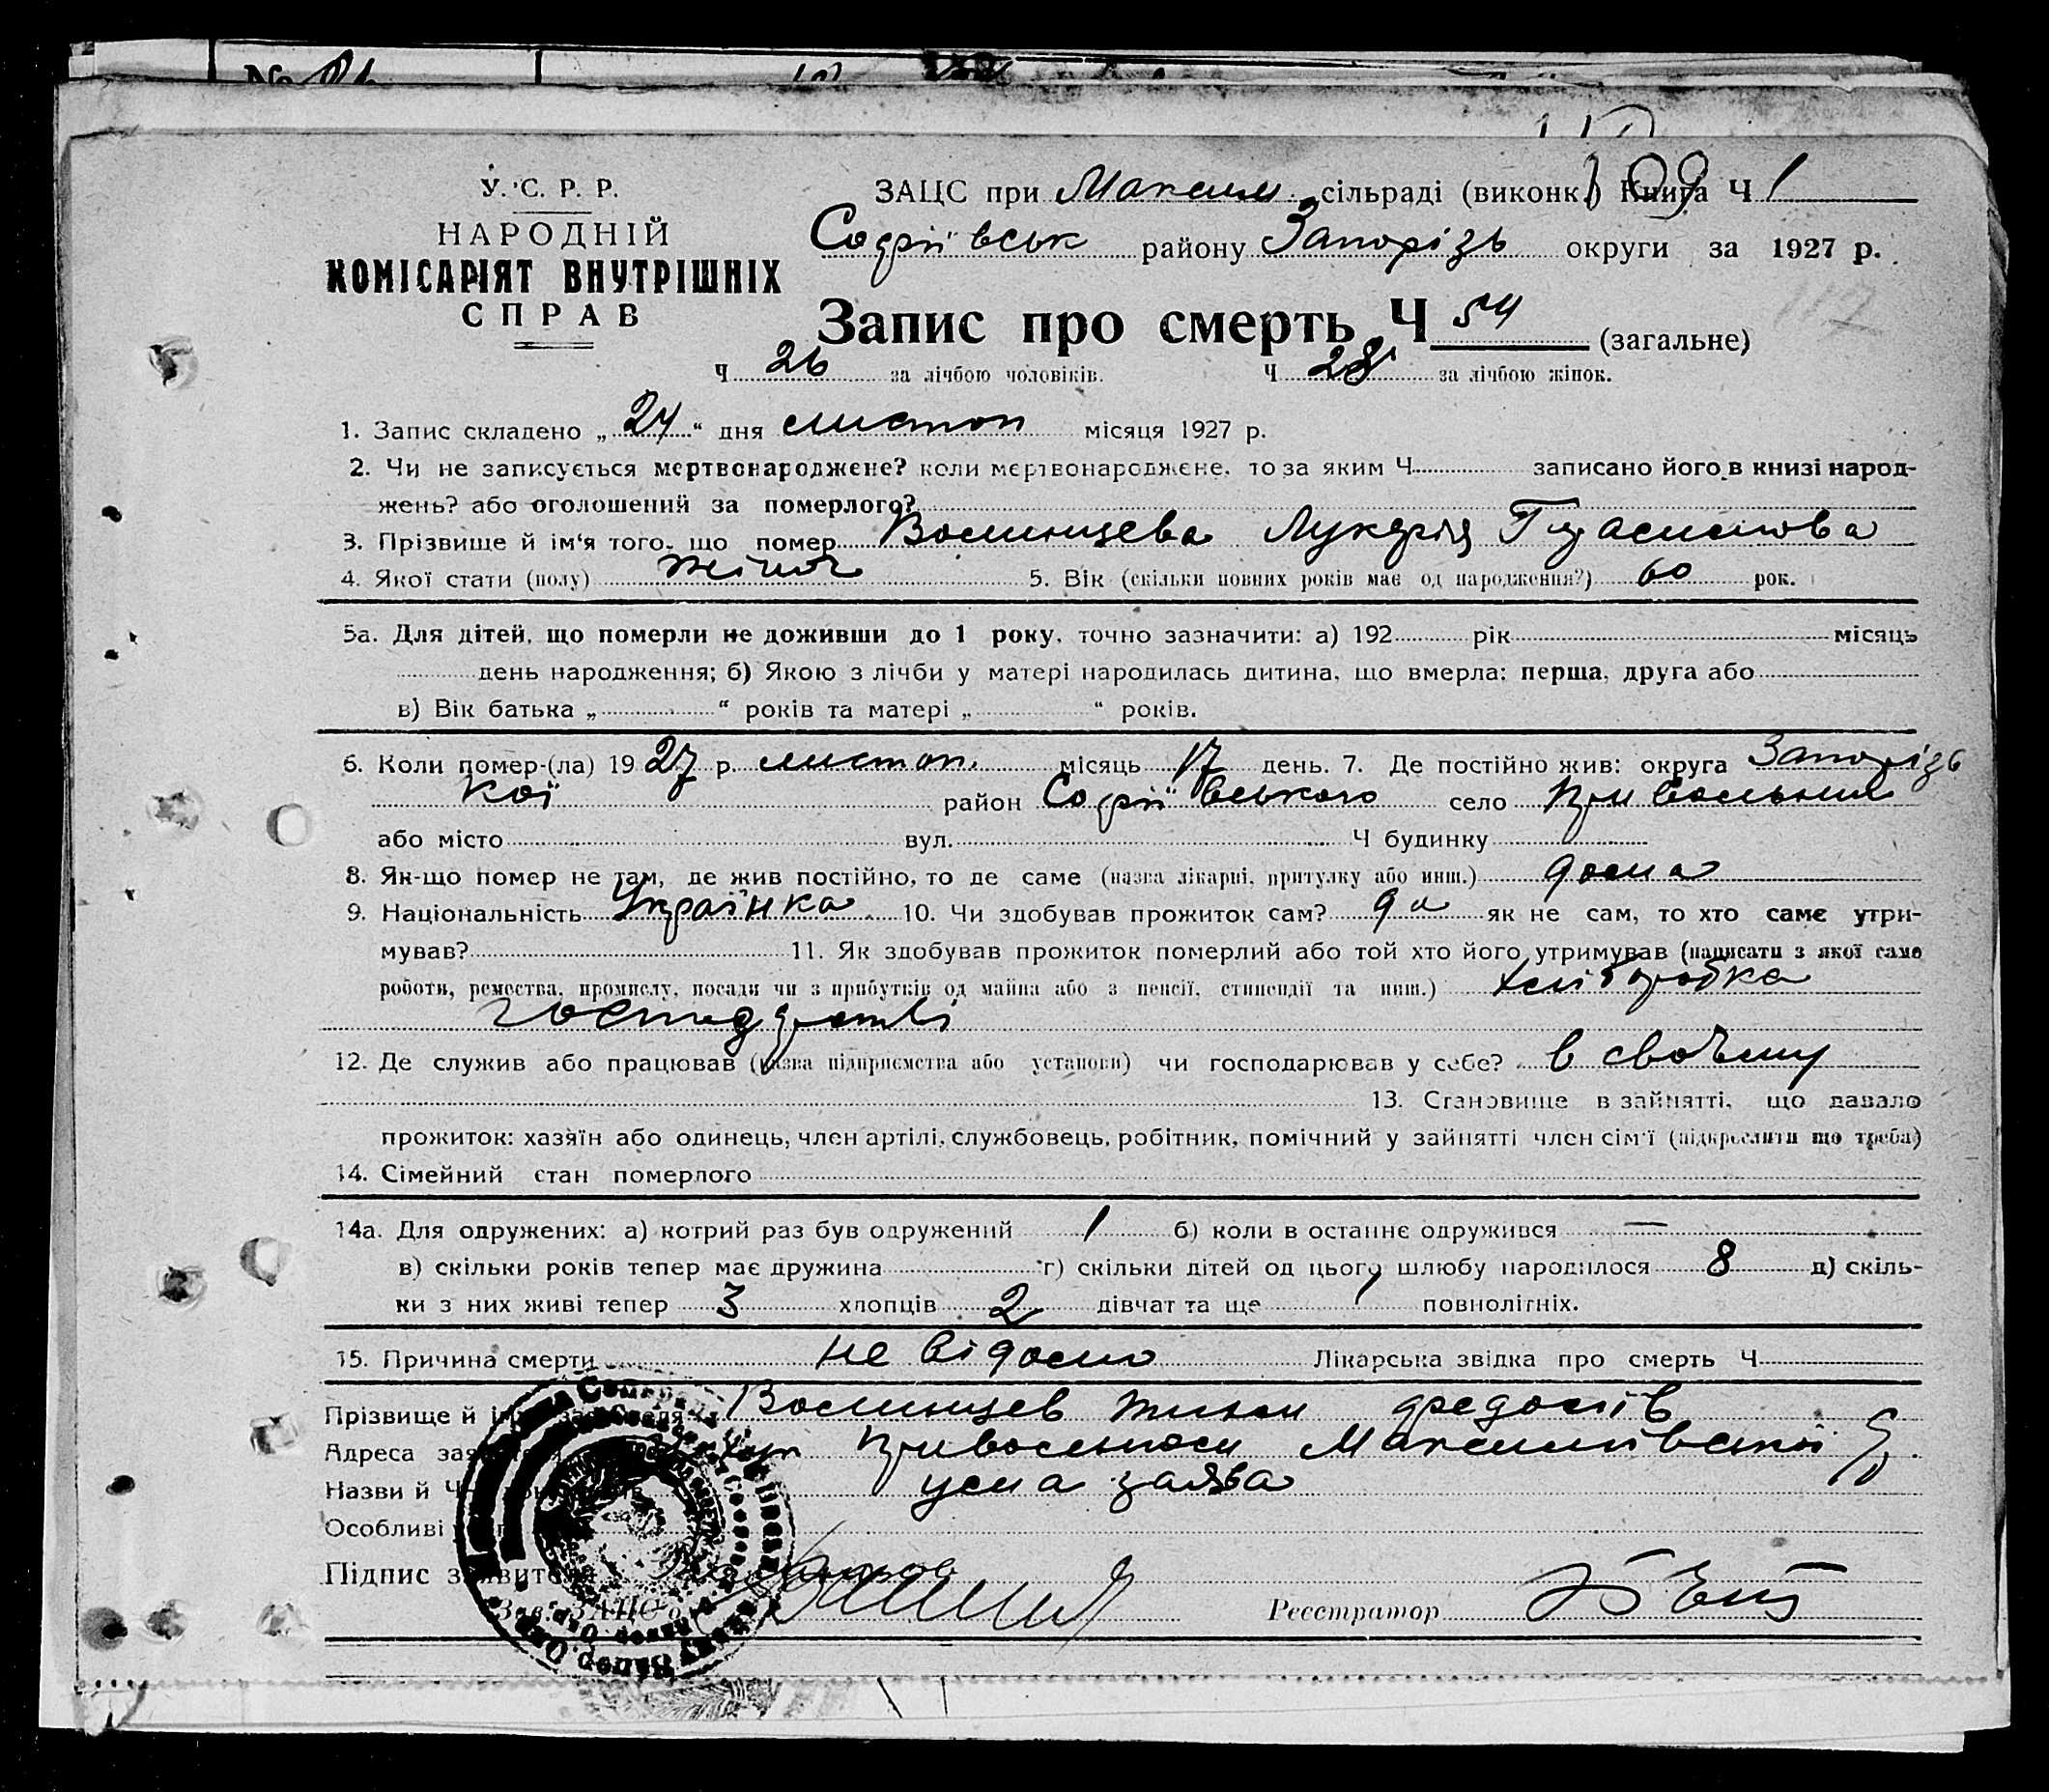 У. С. Р. Р.
НАРОДНІЙ
КОМІСАРІЯТ ВНУТРІШНІХ
СПРАВ
ЗАЦС при Максим. сільраді (виконк.) Книга Ч 1
109
Софіївськ району Запорізь округи за 1927 р.
117
Запис про смерть Ч 54 (загальне)
Ч 26 за лічбою чоловіків. Ч 28 за лічбою жінок.
1. Запис складено „24“ дня листоп місяця 1927 р.
2. Чи не записується мертвонароджене? коли мертвонароджене, то за яким Ч записано його в книзі народ-
жень? або оголошений за померлого?
3. Прізвище й ім'я того, що помер Волинцева Лукерія Герасимова
4. Якої стати (полу) жіноч 5. Вік (скільки повних років має од народження?) 60 рок.
5а. Для дітей, що померли не доживши до 1 року, точно зазначити: а) 192 рік місяць
день народження; б) Якою з лічби у матері народилась дитина, що вмерла: перша, друга або
в) Вік батька „ “ років та матері „ “ років.
6. Коли помер-(ла) 1927 р. листоп. місяць 17 день. 7. Де постійно жив: округа Запорізь
кої район Софіївського село Привольния
або місто вул. Ч будинку
8. Як-що помер не там, де жив постійно, то де саме (назва лікарні, притулку або инш.) дома
9. Національність Українка 10. Чи здобував прожиток сам? да як не сам, то хто саме утри-
мував? 11. Як здобував прожиток померлий або той хто його утримував (написати з якої само
роботи, ремества, промислу, посади чи з прибутків од майна або з пенсії, стипендії та инш.) хліборобка
12. Де служив або працював (назва підприємства або установи) чи господарював у себе? в своъму
13. Становище в зайнятті, що давало
прожиток: хазяїн або одинець, член артілі, службовець, робітник, помічний у зайнятті член сім'ї (підкреслити що треба)
14. Сімейний стан померлого
14а. Для одружених: а) котрий раз був одружений 1 б) коли в останнє одружився —
в) скільки років тепер має дружина г) скільки дітей од цього шлюбу народилося 8 д) скіль-
ки з них живі тепер 3 хлопців 2 дівчат та ще / повнолітніх.
15. Причина смерти не відомо Лікарська звідка про смерть Ч
Прізвище й Волинцев Тихон Федосіїв
Адреса Привольноси Максимівської
Назви й Ч усна заява
Особливі
Підпис заявителя
Зав. ЗАЦС'ом Реєстратор